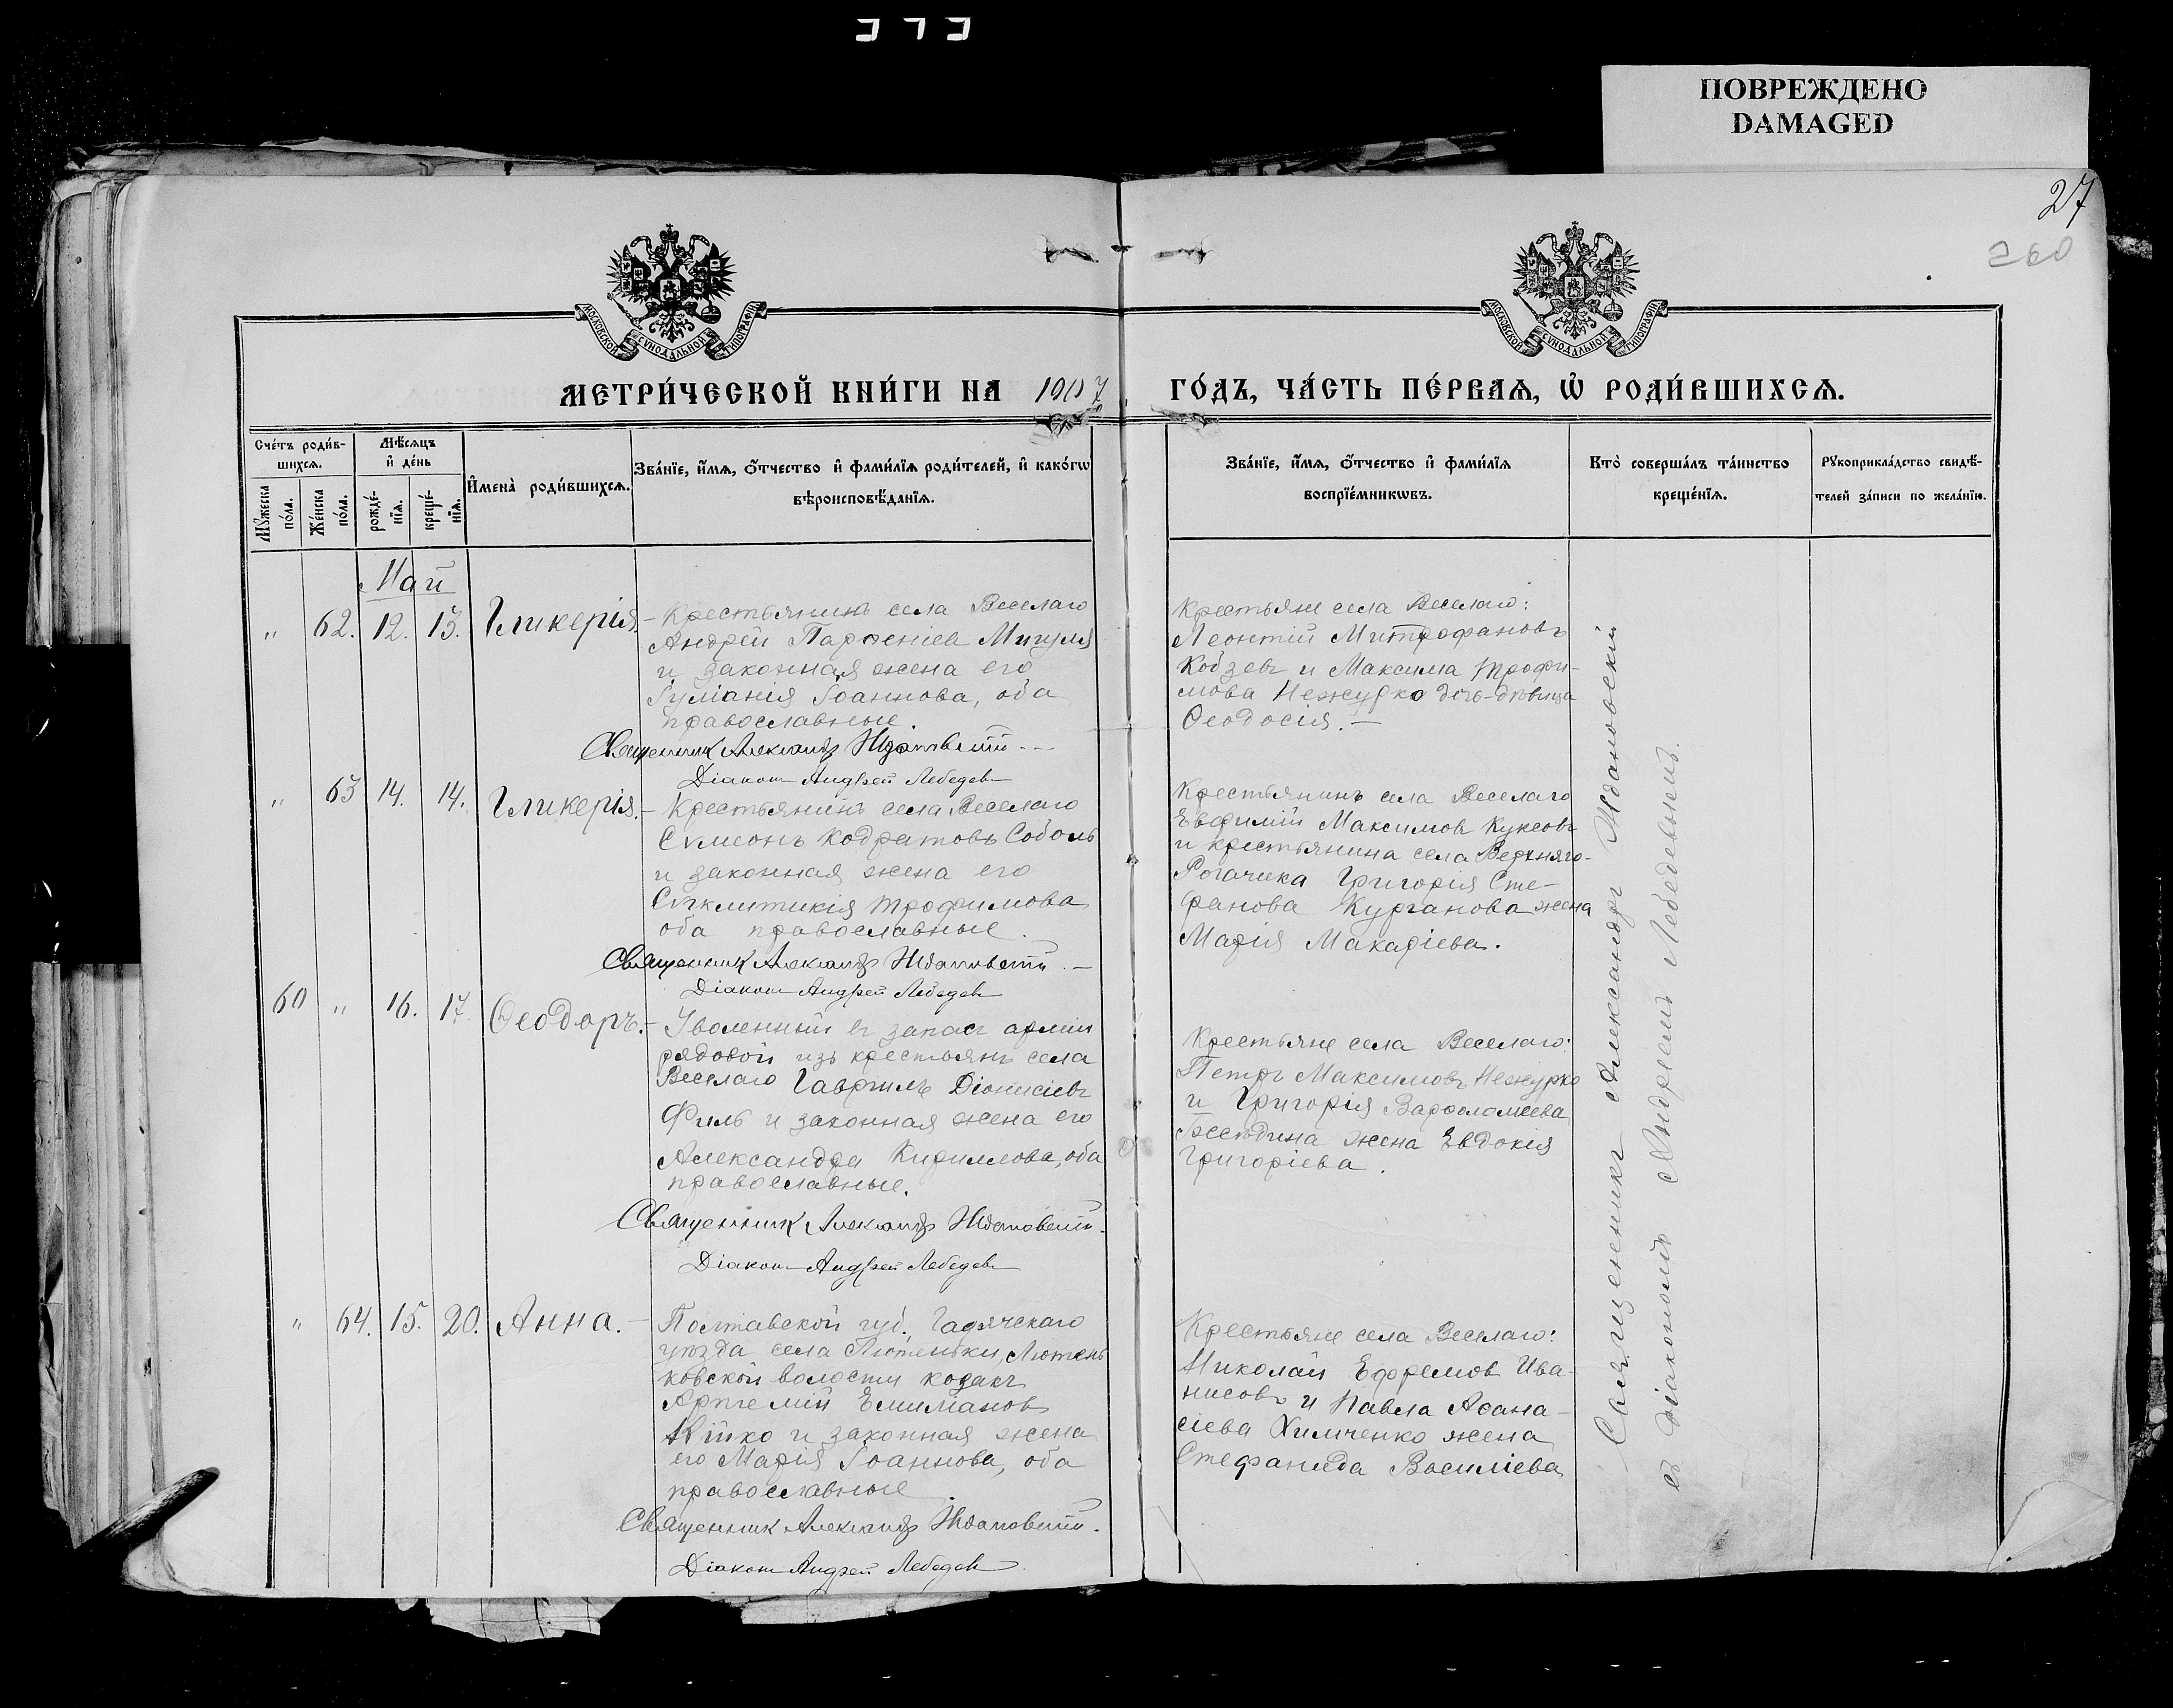 ПОВРЕЖДЕНО
DAMAGED
27
260
МОСКОВСКОЙ СѴНОДАЛЬНОЙ ТИПОГРАФІИ
МОСКОВСКОЙ СѴНОДАЛЬНОЙ ТИПОГРАФІИ
МЕТРИ́ЧЕСКОЙ КНИ́ГИ НА 1907 ГО́ДЪ, ЧА́СТЬ ПЕ́РВАѦ, Ѡ҆ РОДИ́ВШИХСѦ.
Сче́тъ роди́в-
шихсѧ.
Мѣ́сѧцъ
и҆ де́нь
Мꙋ́жеска
по́ла.
Же́нска
по́ла.
рожде́-
нїѧ.
креще́-
нїѧ.
И҆мена̀ роди́вшихсѧ.
Зва́нїе, и҆́мѧ, ѻ҆́тчество и҆ фами́лїѧ роди́телей, и҆ како́гѡ
вѣроисповѣ́данїѧ.
Зва́нїе, и҆́мѧ, ѻ҆́тчество и҆ фами́лїѧ
воспрїе́мникѡвъ.
Кто̀ соверша́лъ та́инство
креще́нїѧ.
Рꙋкоприкла́дство свидѣ́-
телей за́писи по жела́нїю.
Май
" 62. 12. 13. Гликерія. –
Крестьянинъ села Веселаго
Андрей Парѳеніев Мигуля
и законная жена его
Іуліанія Іоаннова, оба
православные.
Священник Александр Ждановскій. –
Діакон Андрей Лебедев
Крестьяне села Веселаго:
Леонтій Митрофановъ
Кобзевъ и Максима Трофи-
мова Нежурко дочь-дѣвица
Ѳеодосія. –
" 63 14. 14. Гликерія. –
Крестьянинъ села Веселаго
Сѵмеонъ Кодратовъ Соболь
и законная жена его
Сѵнклитикія Трофимова
оба православные.
Священник Александр Ждановскій. –
Діакон Андрей Лебедев
Крестьянинъ села Веселаго
Евфимій Максимов Куксовъ
и крестьянина села Верхняго-
Рогачика Григорія Сте-
фанова Курганова жена
Марія Макаріева.
60 " 16. 17. Ѳеодоръ. –
Уволенный въ запасъ арміи
рядовой изъ крестьянъ села
Веселаго Гавріилъ Діонисіевъ
Филь и законная жена его
Александра Кириллова, оба
православные.
Священник Александр Ждановскій.
Діакон Андрей Лебедев
Крестьяне села Веселаго:
Петръ Максимовъ Нежурко
и Григорія Варѳоломеева
Бесѣдина жена Евдокія
Григоріева.
" 64. 15. 20. Анна. –
Полтавской губ. Гадячскаго
уѣзда села Лютеньки, Лютень
ковской волости козакъ
Артемій Емиліанов
и законная жена
его Марія Іоаннова, оба
православные.
Священник Александр Ждановскій.
Діакон Андрей Лебедев
Крестьяне села Веселаго:
Николай Ефремов Ива-
нисовъ и Павла Аѳана-
сіева Химченко жена
Стефанида Васильева
Священникъ Александръ Ждановскій
съ діакономъ Андреемъ Лебедевымъ.